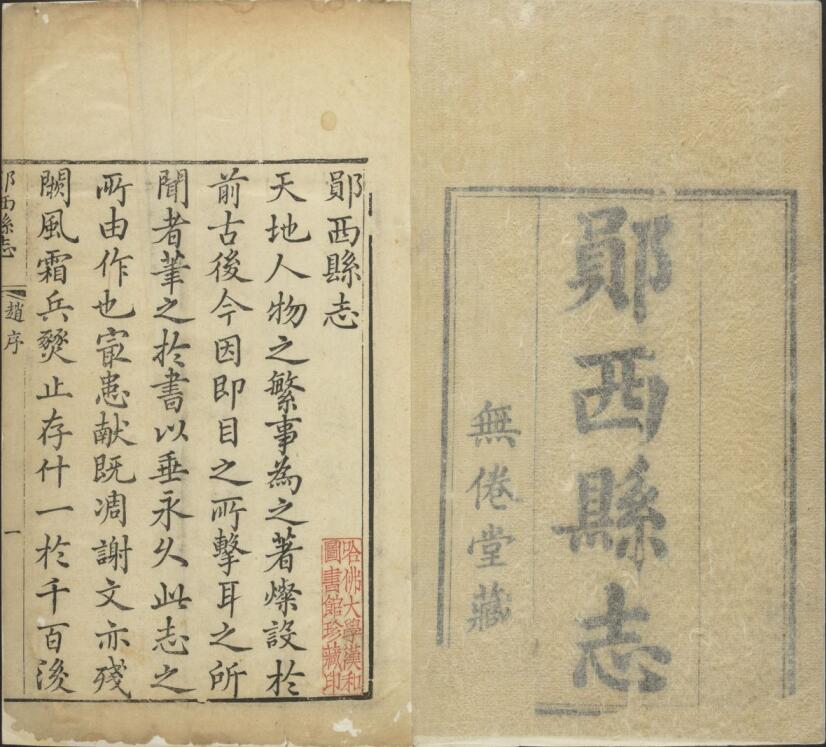 鄖西縣志
無倦堂藏
鄖西縣志
天地人物之繁事為之著燦設於
前古後今因即目之所擊耳之所
聞者筆之於書以垂永久此志之
所由作也㝡患献既凋謝文亦殘
闕風霜兵燹止存什一於千百後
哈佛大學漢和
圖書館珍藏印
鄖西縣志 趙序 一